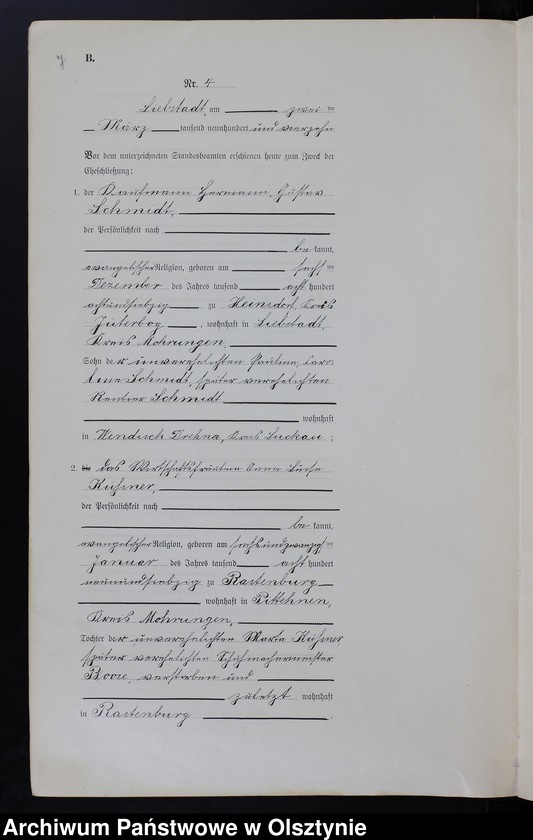 B.
Nr. 4
Liebstadt, am zwei ten
März tausend neunhundert und vierzehn
Vor dem unterzeichneten Standesbeamten erschienen heute zum Zweck der
Eheschließung:
1. der Kaufmann Hermann, Gustav
Schmidt,
der Persönlichkeit nach
be kannt,
evangelischer Religion, geboren am sechs ten
Dezember des Jahres tausend acht hundert
achtundsiebzig zu Heinsdorf, Kreis
Jüterbog, wohnhaft in Liebstadt,
Kreis Mohrungen,
Sohn der unverehelichten Pauline, Caro
line Schmidt, später verehelichten
Rentier Schmidt
wohnhaft
in Wendisch Drehna, Kreis Luckau;
2. die das Wirtschaftsfräulein Anna Luise
der Persönlichkeit nach
be kannt,
evangelischer Religion, geboren am sechsundzwanzigs ten
Januar des Jahres tausend acht hundert
neunundsiebzig zu Rastenburg
wohnhaft in Pittehnen,
Kreis Mohrungen,
Tochter der unverehelichten Marta
später verehelichten Schuhmachermeister
verstorben und
zuletzt wohnhaft
in Rastenburg.
Archiwum Państwowe w Olsztynie